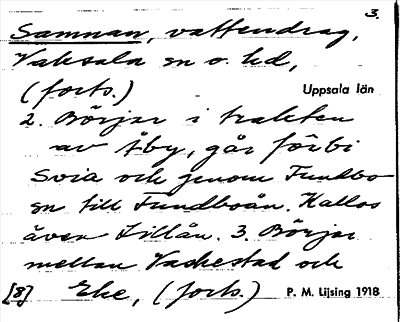 3.
Samnan, vattendrag,
Vaksala sn o. hd,
(forts.) Uppsala län
2. Börjar i trakten
av Åby, går förbi
Svia och genom Funbo
sn till Funboån. Kallas
även Lillån. 3. Börjar
mellan Vaskestad och
[8] Eke, (forts.) P. M. Lijsing 1918